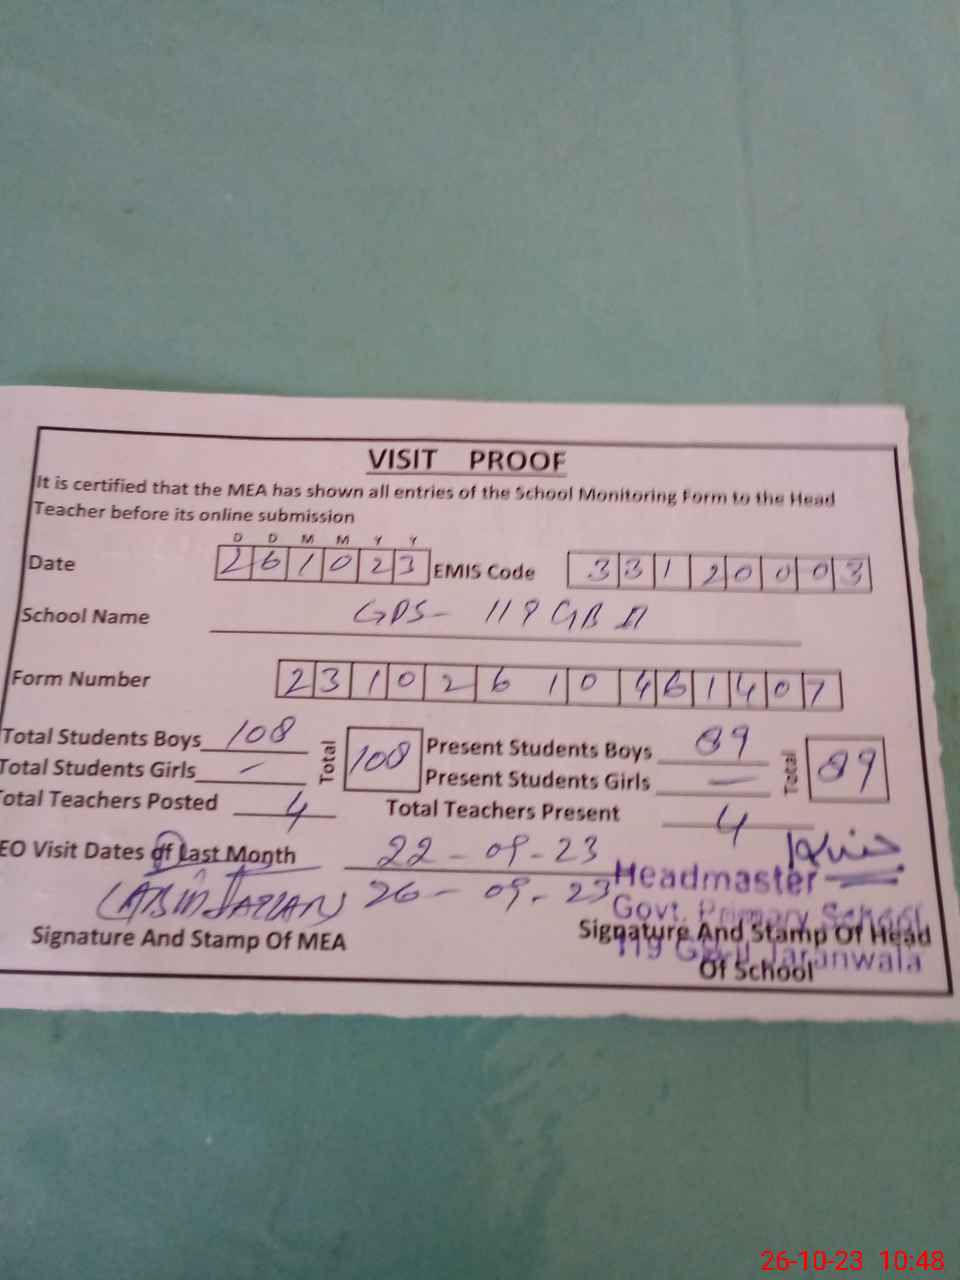 VISIT PROOF
It is certified that the MEA has shown all entries of the School Monitoring Form to the Head
Teacher before its online submission
D D M M Y Y
Date 261023 EMIS Code 33120003
School Name GPS- 119 GB II
Form Number 23102610461407
Total Students Boys 108 Total 108 Present Students Boys 89 Total 89
Total Students Girls - Present Students Girls -
Total Teachers Posted 4 Total Teachers Present 4
EO Visit Dates of Last Month 22-09-23
26-09-23
Headmaster
Govt. Primary School
119 GB-II Jaranwala
Signature And Stamp Of MEA Signature And Stamp Of Head
Of School
26-10-23 10:48